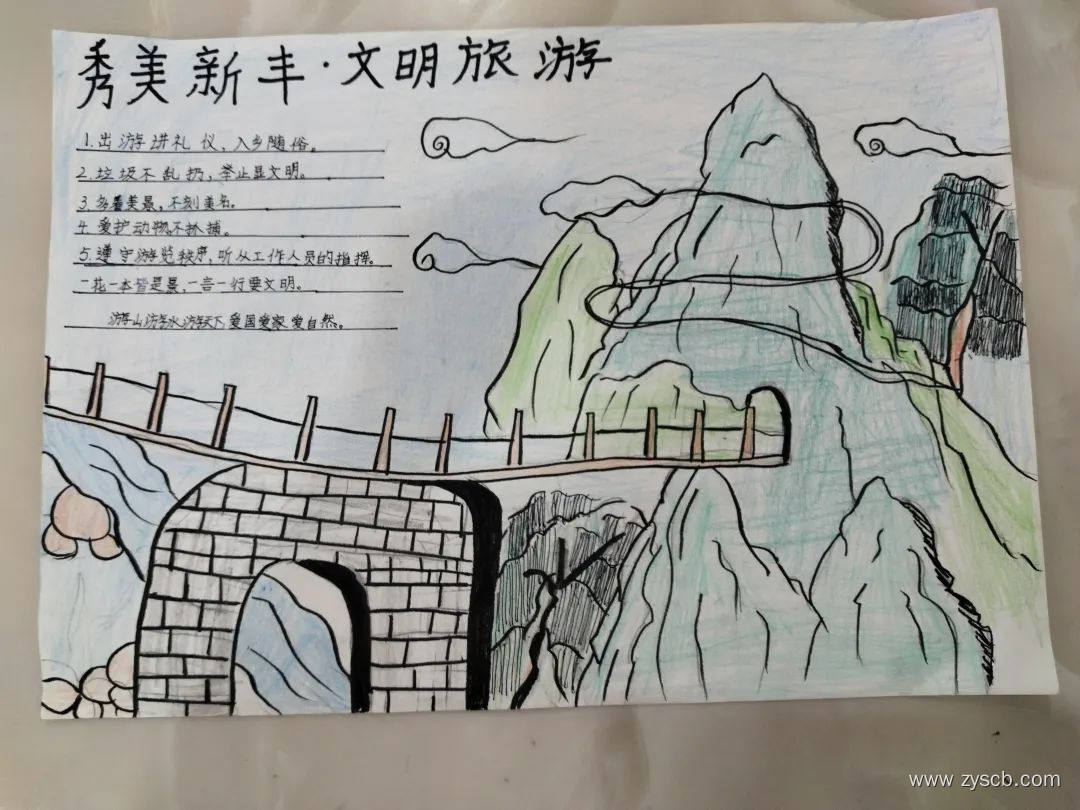 秀美新丰·文明旅游
1.出游讲礼仪、入乡随俗。
2.垃圾不乱扔,举止显文明。
3.多看美景,不刻美名。
4.爱护动物不抓捕。
5.遵守游览秩序,听从工作人员的指挥。
一花一木皆是景,一言一行要文明。
游山游水游天下爱国爱家爱自然。
www.zyscb.com